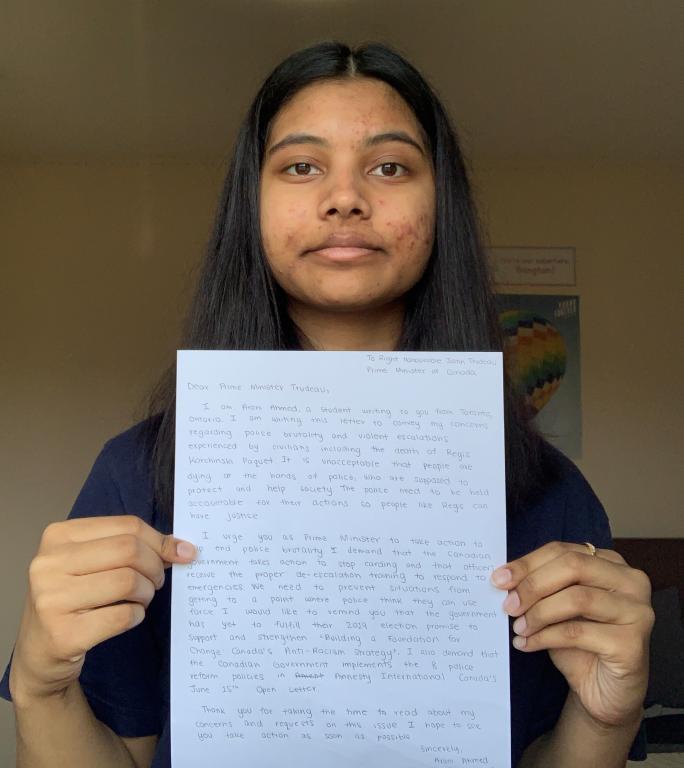 To Right Honourable Justin Trudeau
Prime Minister of Canada
Dear Prime Minister Trudeau,
I am Aram Ahmed, a student writing to you from Toronto,
Ontario. I am writing this letter to convey my concerns
regarding police brutality and violent escalations
experienced by civilians including the death of Regis
Korchinski Paquet. It is unacceptable that people are
dying at the hands of police, who are supposed to
protect and help society. The police need to be held
accountable for their actions so people like Regis can
have justice.
I urge you as Prime Minister to take action to
end police brutality. I demand that the Canadian
government takes action to stop carding and that officers
receive the proper de-escalation training to respond to
emergencies. We need to prevent situations from
getting to a point where police think they can use
force. I would like to remind you that the government
has yet to fulfill their 2019 election promise to
support and strengthen "Building a Foundation for
Change Canada's Anti-Racism Strategy". I also demand that
the Canadian Government implements the 8 police
reform policies in Amnesty International Canada's
June 15th Open Letter.
Thank you for taking the time to read about my
concerns and requests on this issue. I hope to see
you take action as soon as possible.
Sincerely,
Aram Ahmed
YOUNG
FOREVER